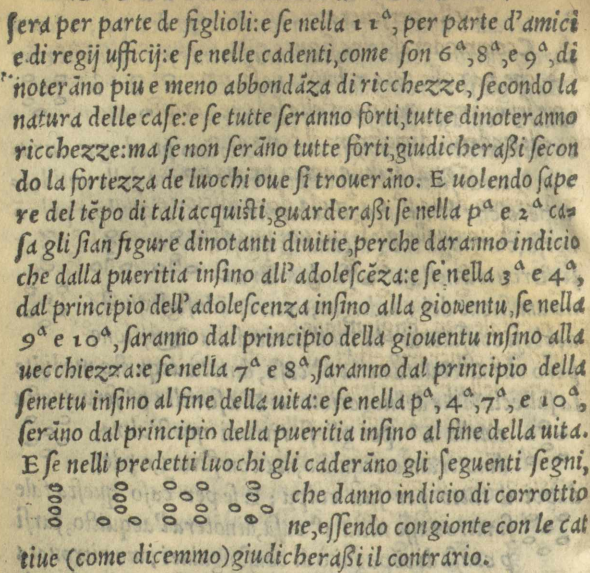 ſera per parte de figlioli:e ſe nella 11ª, per parte d'amici
e di regij ufficij:e ſe nelle cadenti,come ſon 6ª,8ª,e 9ª,di
noterāno piu e meno abbondāza di ricchezze, ſecondo la
natura delle caſe:e ſe tutte ſeranno forti,tutte dinoteranno
ricchezze:ma ſe non ſerāno tutte forti,giudicheraßi ſecon
do la fortezza de luochi oue ſi trouerāno. E uolendo ſape
re del tēpo di tali acquiſti,guarderaßi ſe nella pª e 2ª ca=
ſa gli ſian figure dinotanti diuitie,perche daranno indicio
che dalla pueritia inſino all'adoleſcēza:e ſe nella 3ª e 4ª,
dal principio dell'adoleſcenza inſino alla giouentu,ſe nella
9ª e 10ª, ſaranno dal principio della giouentu inſino alla
uecchiezza:e ſe nella 7ª e 8ª,ſaranno dal principio della
ſenettu inſino al fine della uita:e ſe nella pª, 4ª,7ª, e 10ª,
ſerāno dal principio della pueritia inſino al fine della uita.
E ſe nelli predetti luochi gli caderāno gli ſeguenti ſegni,
che danno indicio di corrottio
ne,eſſendo congionte con le cat
tiue (come dicemmo)giudicheraßi il contrario.